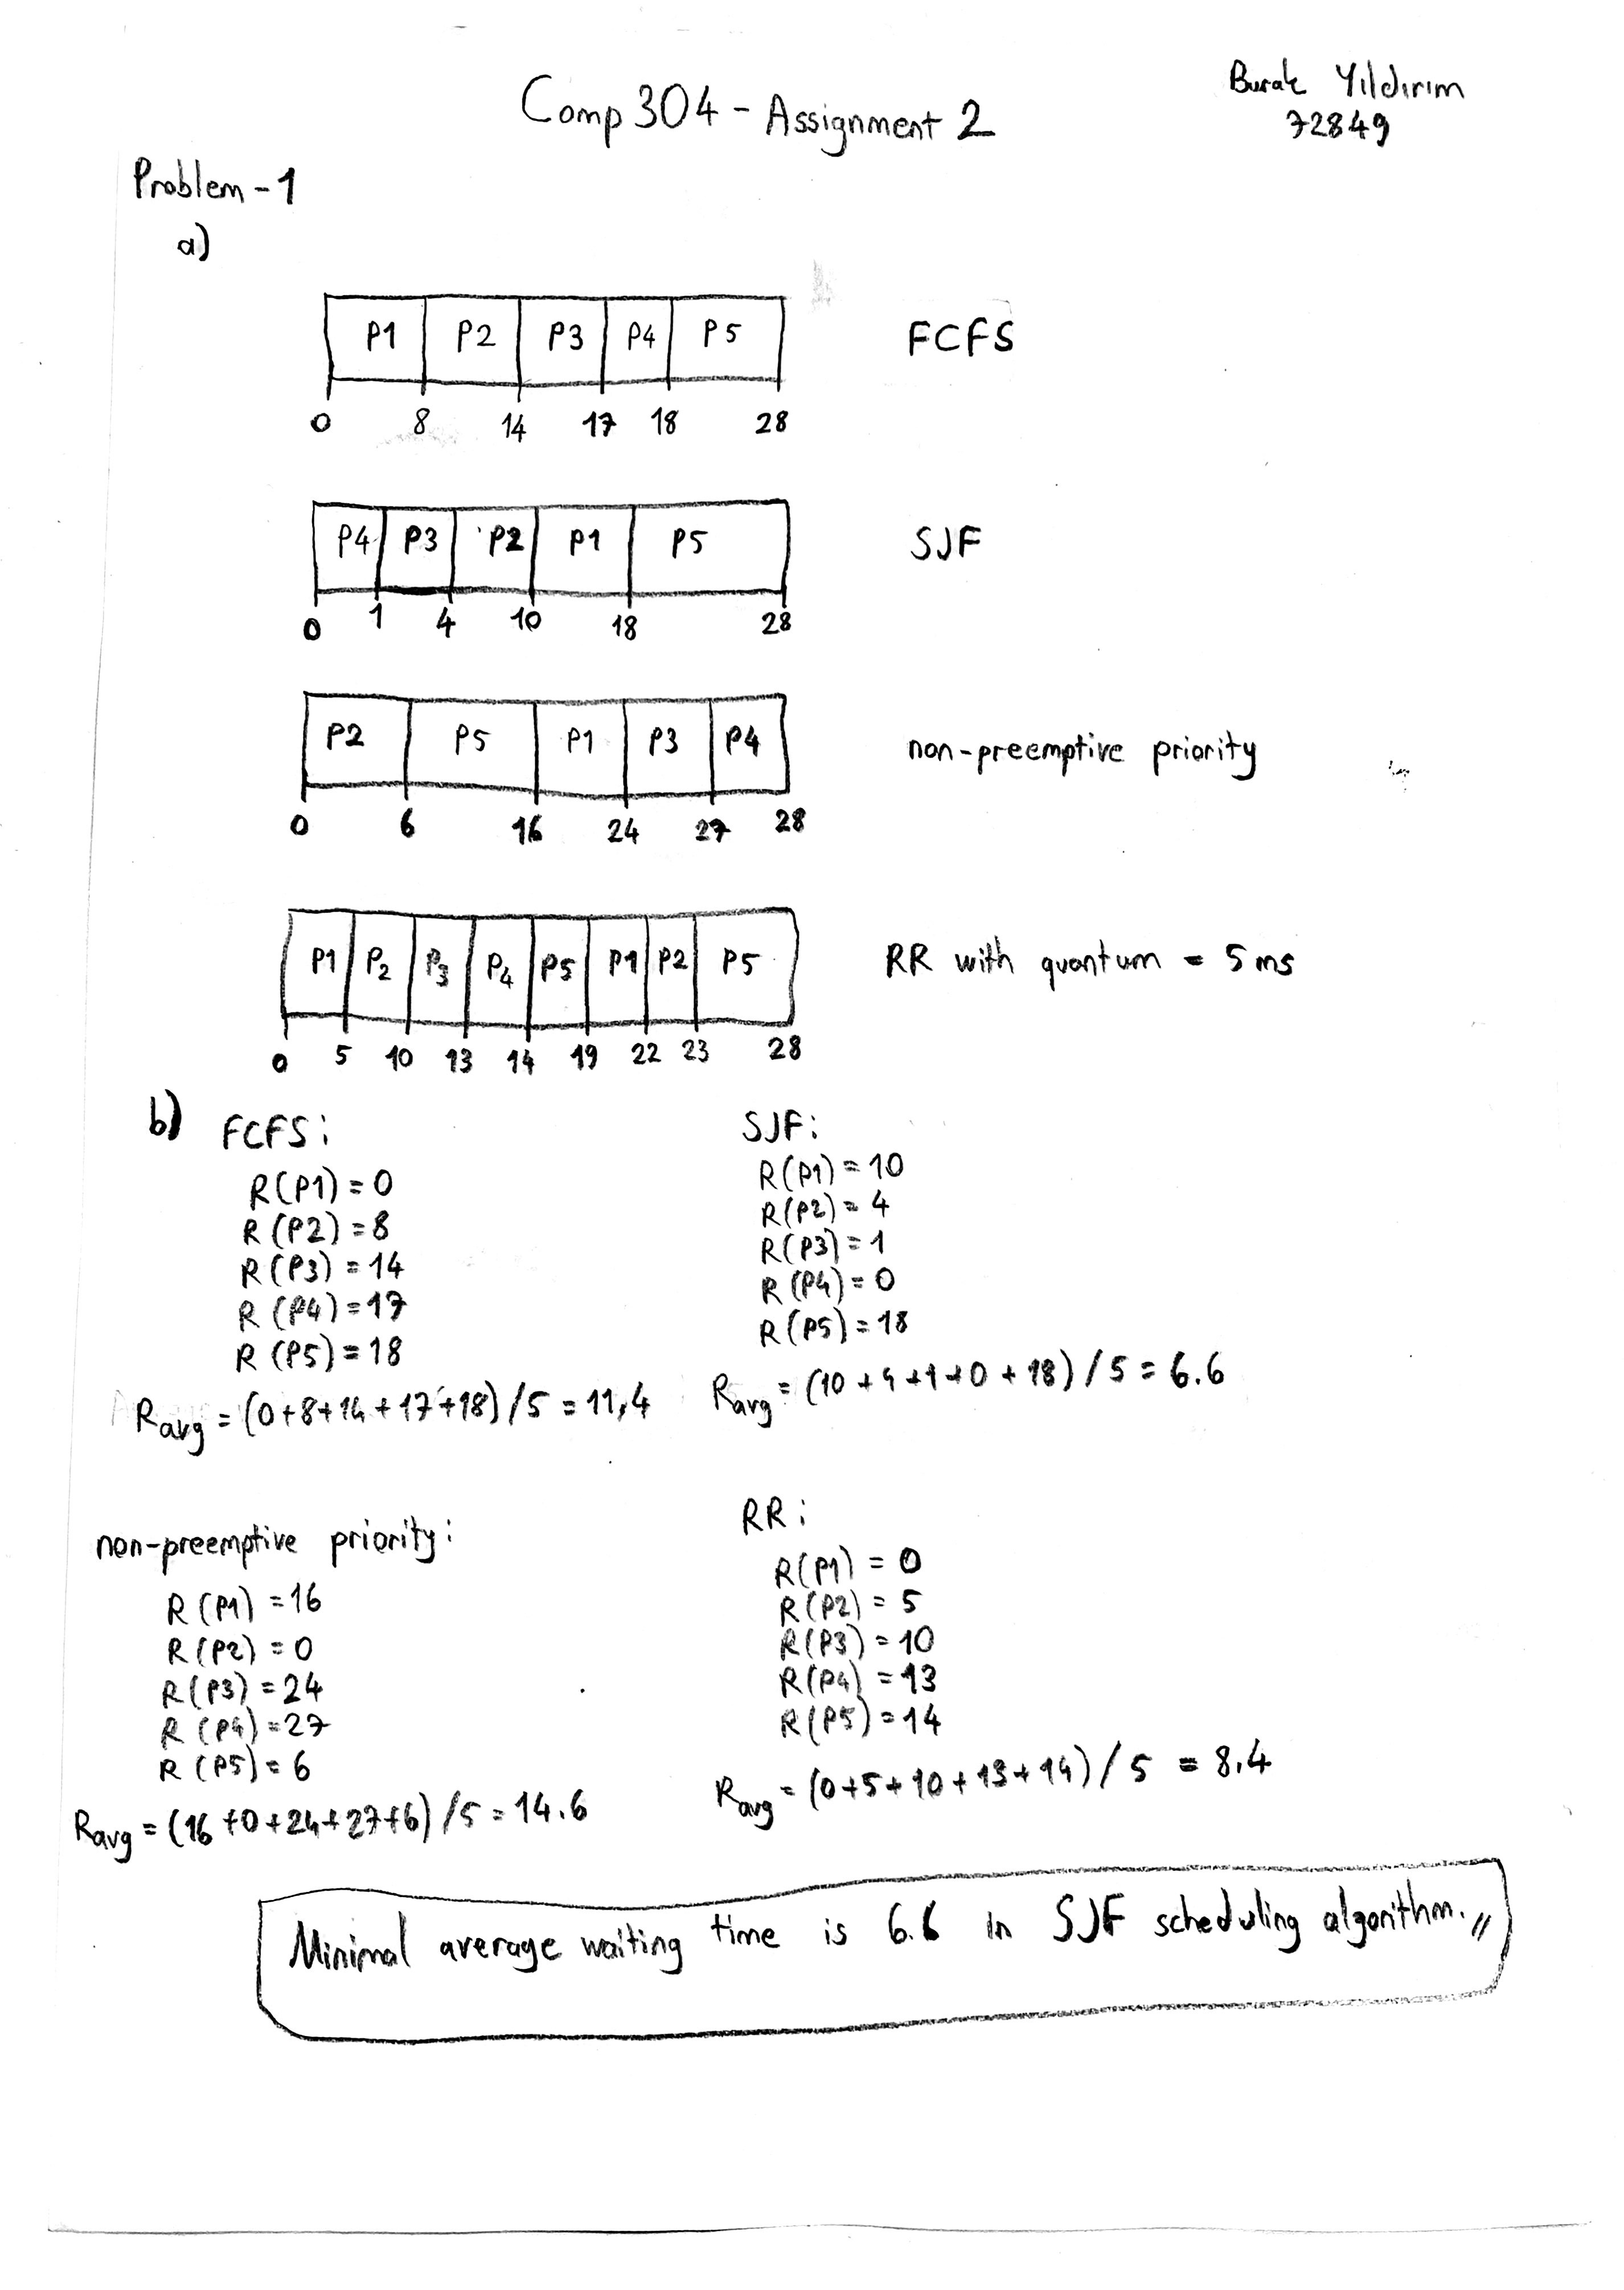 Comp 304 - Assignment 2
Burak Yıldırım
72849
Problem - 1
a)
P1 P2 P3 P4 P5
FCFS
0 8 14 17 18 28
P4 P3 P2 P1 P5
SJF
0 1 4 10 18 28
P2 P5 P1 P3 P4
non-preemptive priority
0 6 16 24 27 28
P1 P2 P3 P4 P5 P1 P2 P5
RR with quantum = 5 ms
0 5 10 13 14 19 22 23 28
b)
FCFS:
R(P1) = 0
R(P2) = 8
R(P3) = 14
R(P4) = 17
R(P5) = 18
Ravg = (0+8+14+17+18)/5 = 11,4
SJF:
R(P1) = 10
R(P2) = 4
R(P3) = 1
R(P4) = 0
R(P5) = 18
Ravg = (10+4+1+0+18)/5 = 6.6
non-preemptive priority:
R(P1) = 16
R(P2) = 0
R(P3) = 24
R(P4) = 27
R(P5) = 6
Ravg = (16+0+24+27+6)/5 = 14.6
RR:
R(P1) = 0
R(P2) = 5
R(P3) = 10
R(P4) = 13
R(P5) = 14
Ravg = (0+5+10+13+14)/5 = 8.4
Minimal average waiting time is 6.6 in SJF scheduling algorithm.,,